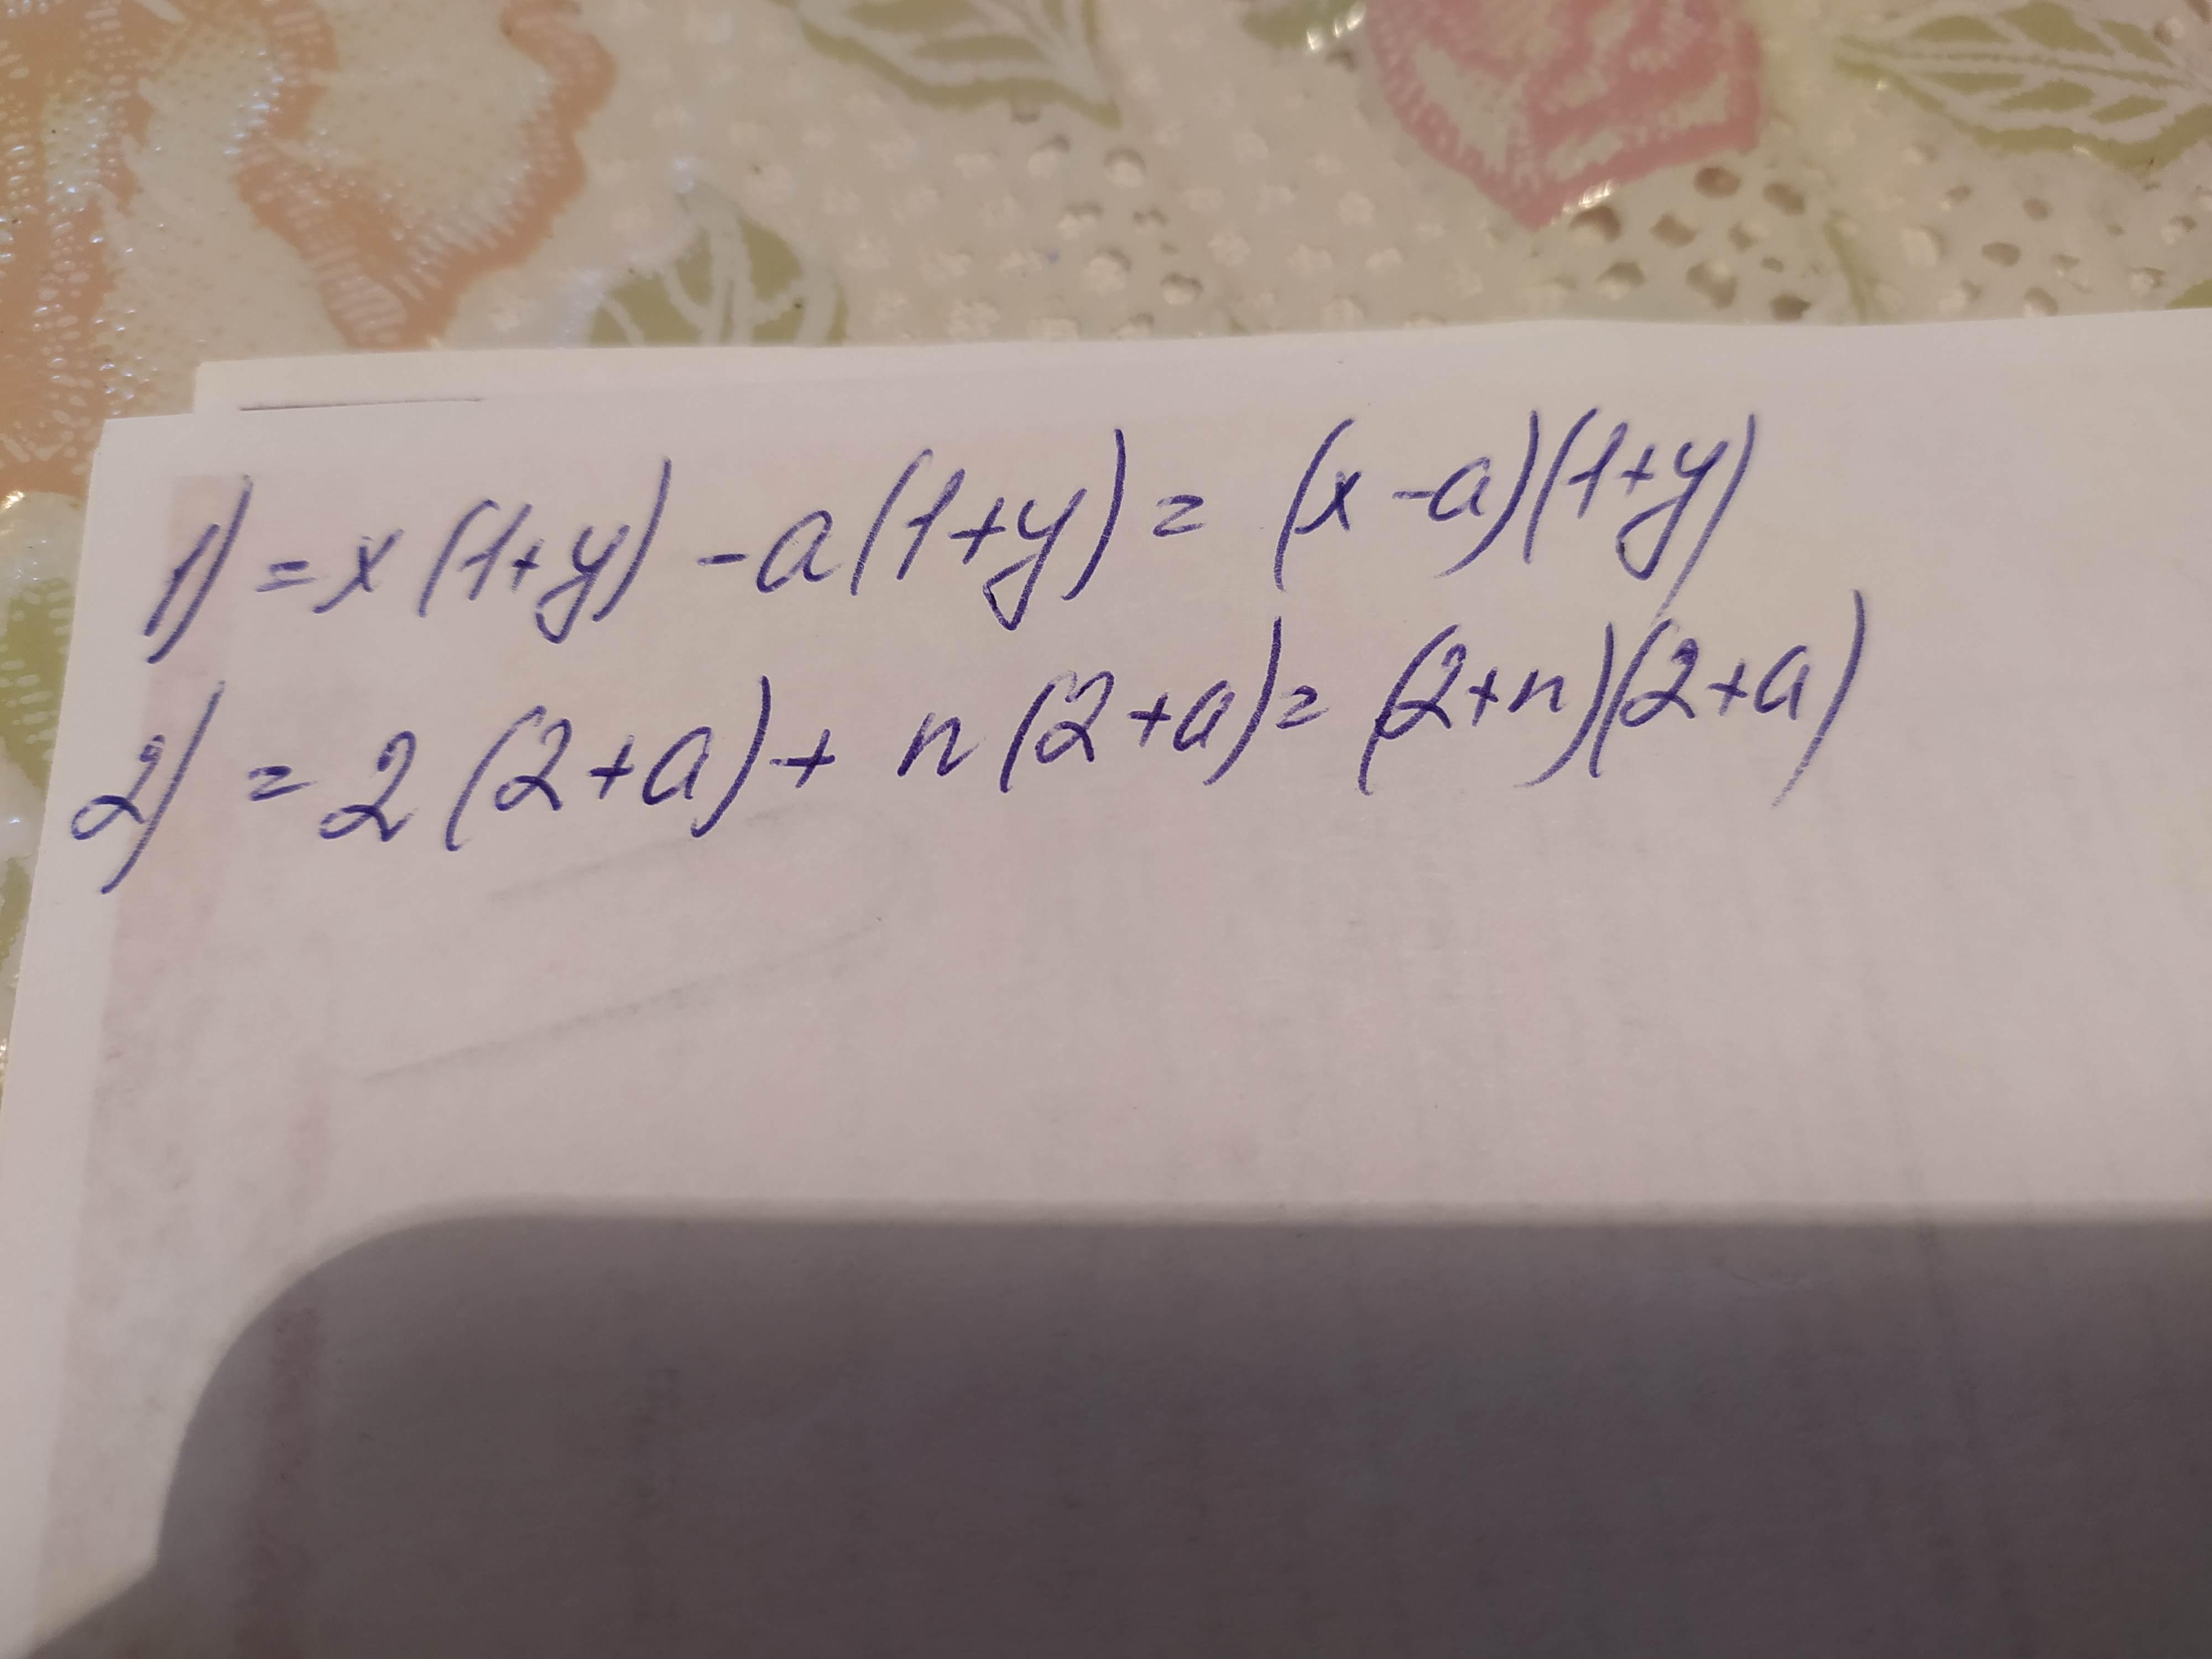 1) = x (1+y) - a (1+y) = (x - a)(1+y)
2) = 2 (2+a) + n (2+a) = (2+n)(2+a)